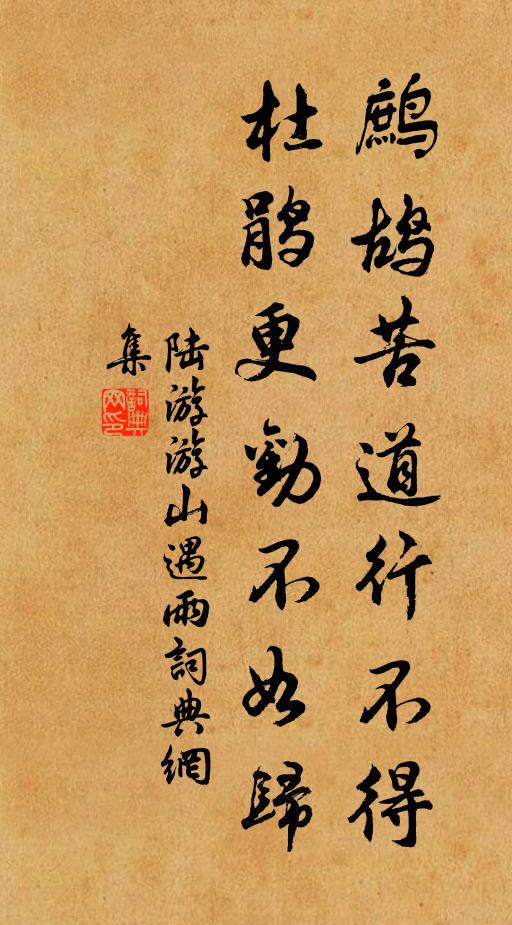 鷓鴣苦道行不得
杜鹃更勸不如歸
陆游游山遇雨詞典網
集
詞典网印